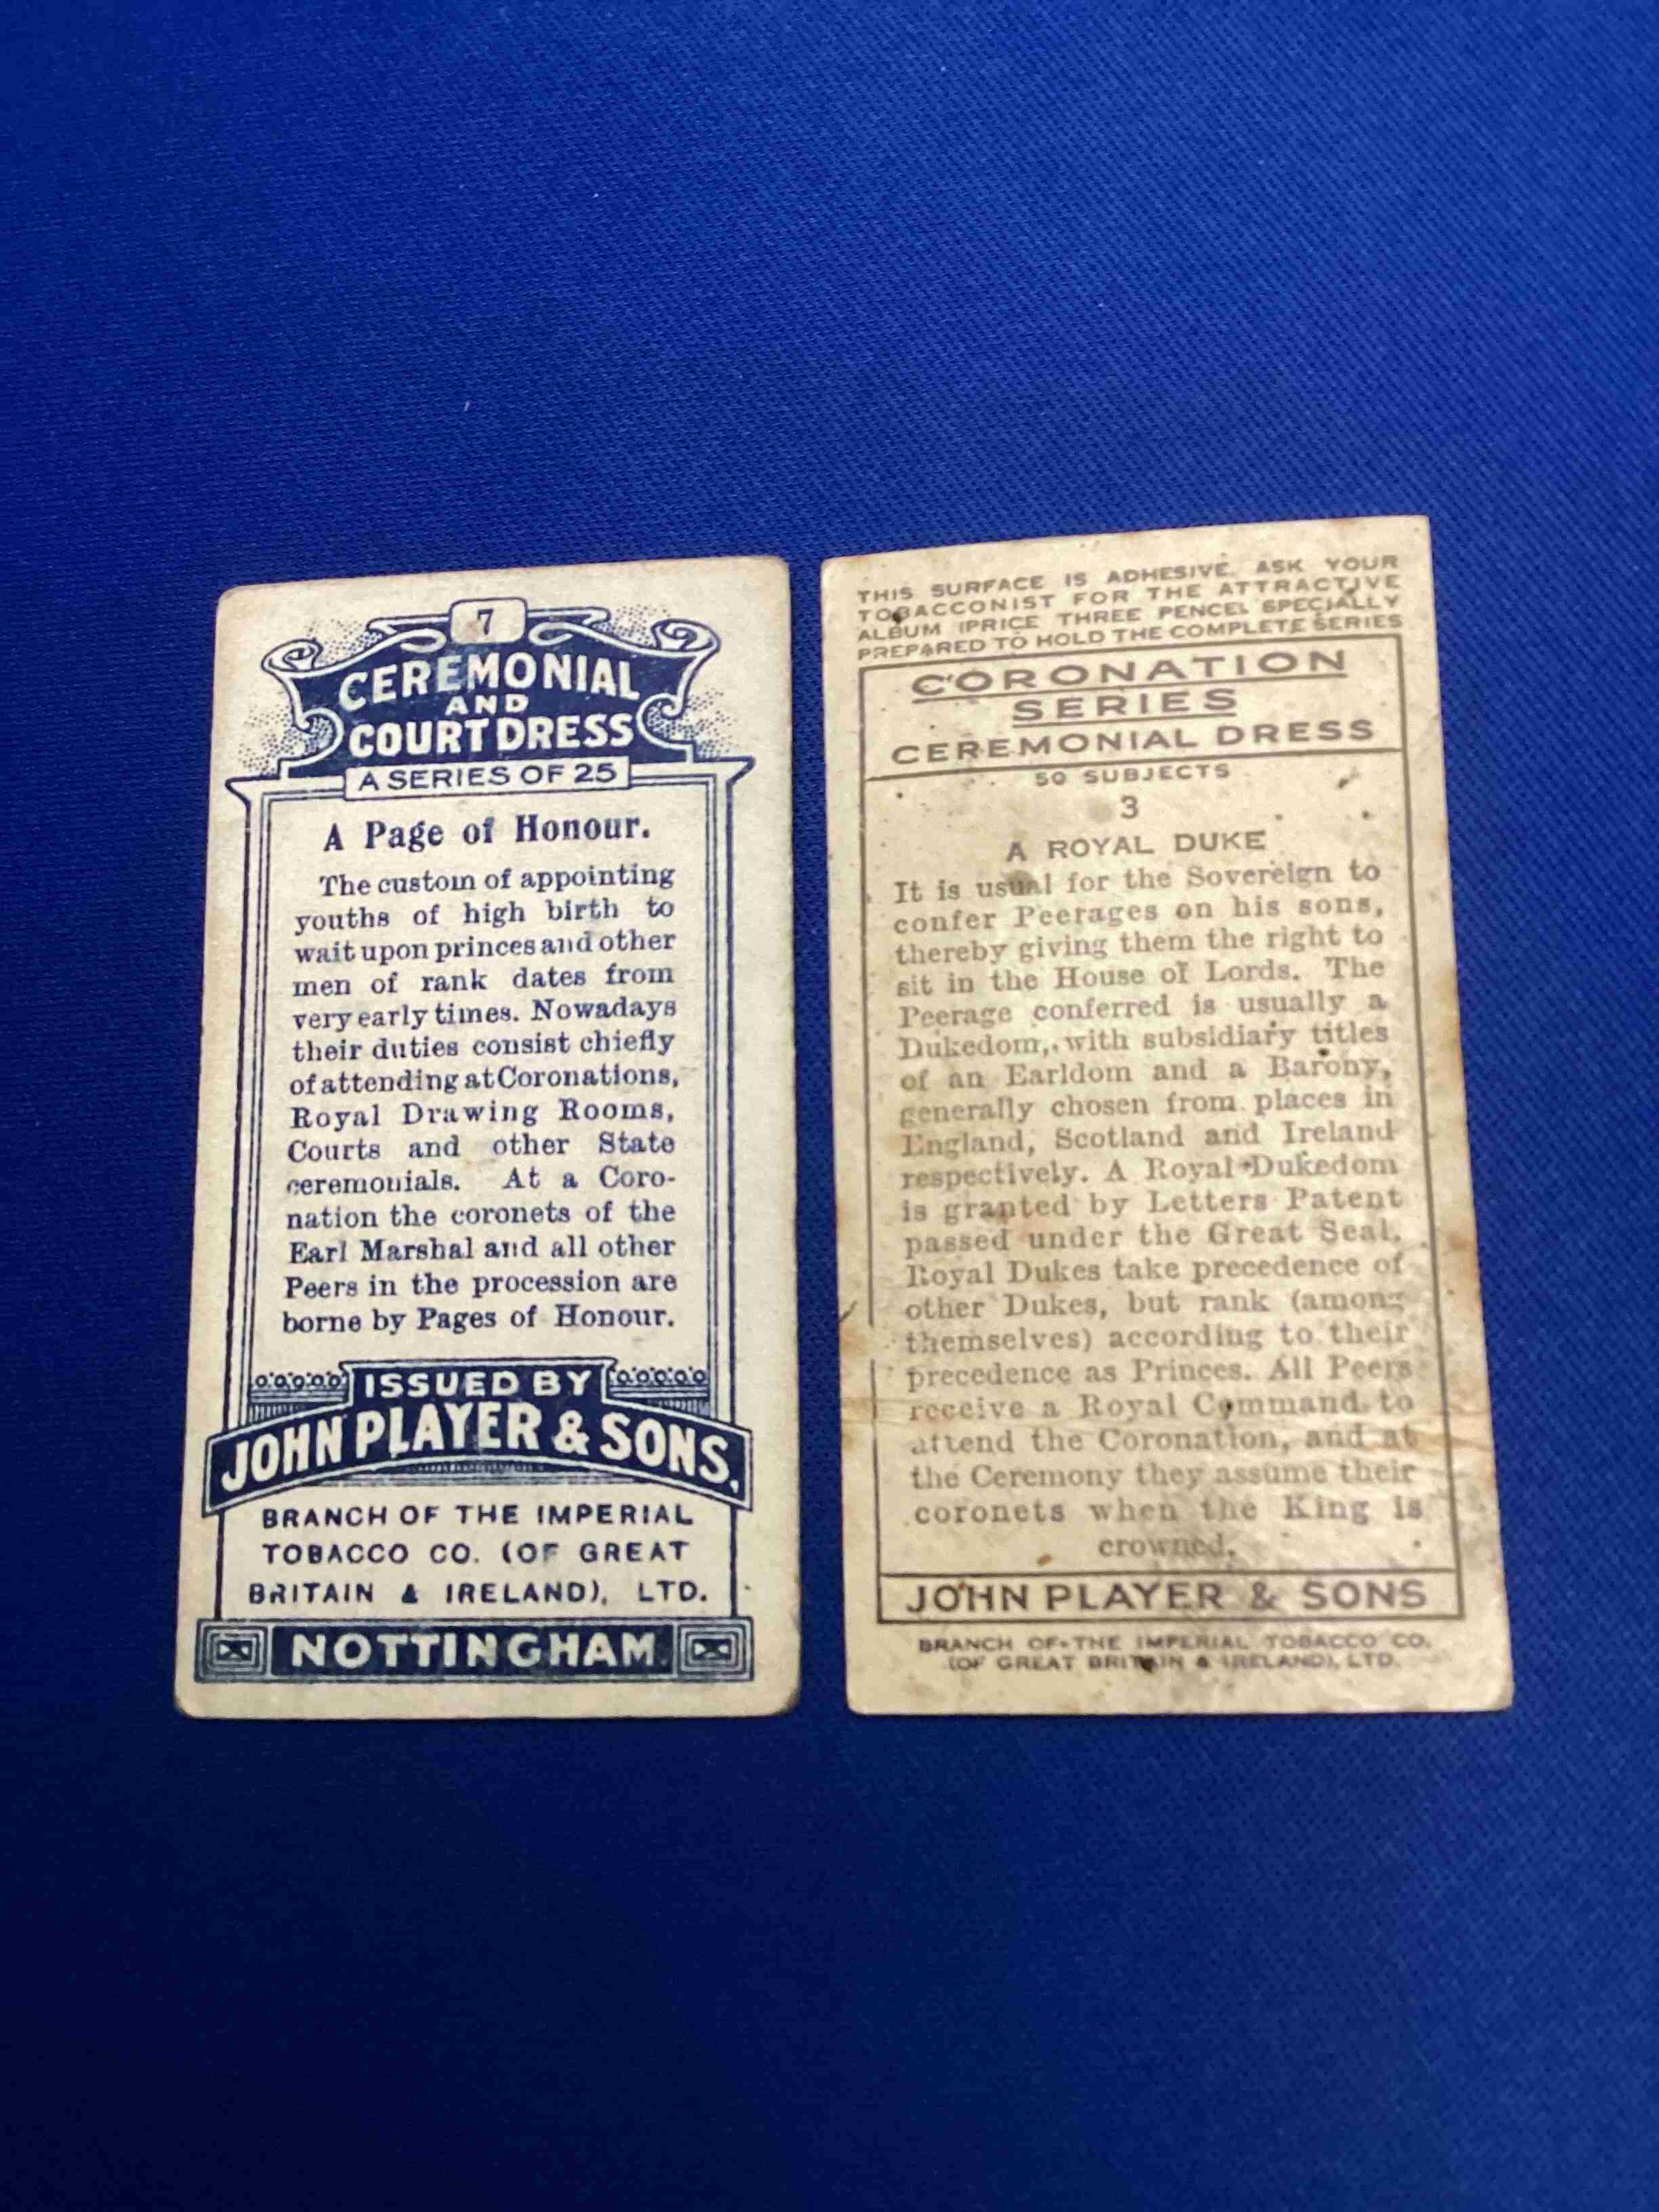 7
CEREMONIAL
AND
COURT DRESS
A SERIES OF 25
A Page of Honour.
The custom of appointing
youths of high birth to
wait upon princes and other
men of rank dates from
very early times. Nowadays
their duties consist chiefly
of attending at Coronations,
Royal Drawing Rooms,
Courts and other State
ceremonials. At a Coro-
nation the coronets of the
Earl Marshal and all other
Peers in the procession are
borne by Pages of Honour.
ISSUED BY
JOHN PLAYER & SONS,
BRANCH OF THE IMPERIAL
TOBACCO CO. (OF GREAT
BRITAIN & IRELAND), LTD.
NOTTINGHAM.
THIS SURFACE IS ADHESIVE. ASK YOUR
TOBACCONIST FOR THE ATTRACTIVE
ALBUM (PRICE THREE PENCE), SPECIALLY
PREPARED TO HOLD THE COMPLETE SERIES
CORONATION
SERIES
CEREMONIAL DRESS
50 SUBJECTS
3
A ROYAL DUKE
It is usual for the Sovereign to
confer Peerages on his sons,
thereby giving them the right to
sit in the House of Lords. The
Peerage conferred is usually a
Dukedom, with subsidiary titles
of an Earldom and a Barony,
generally chosen from places in
England, Scotland and Ireland
respectively. A Royal Dukedom
is granted by Letters Patent
passed under the Great Seal.
Royal Dukes take precedence of
other Dukes, but rank (among
themselves) according to their
precedence as Princes. All Peers
receive a Royal Command to
attend the Coronation, and at
the Ceremony they assume their
coronets when the King is
crowned.
JOHN PLAYER & SONS
BRANCH OF THE IMPERIAL TOBACCO CO.
(OF GREAT BRITAIN & IRELAND), LTD.